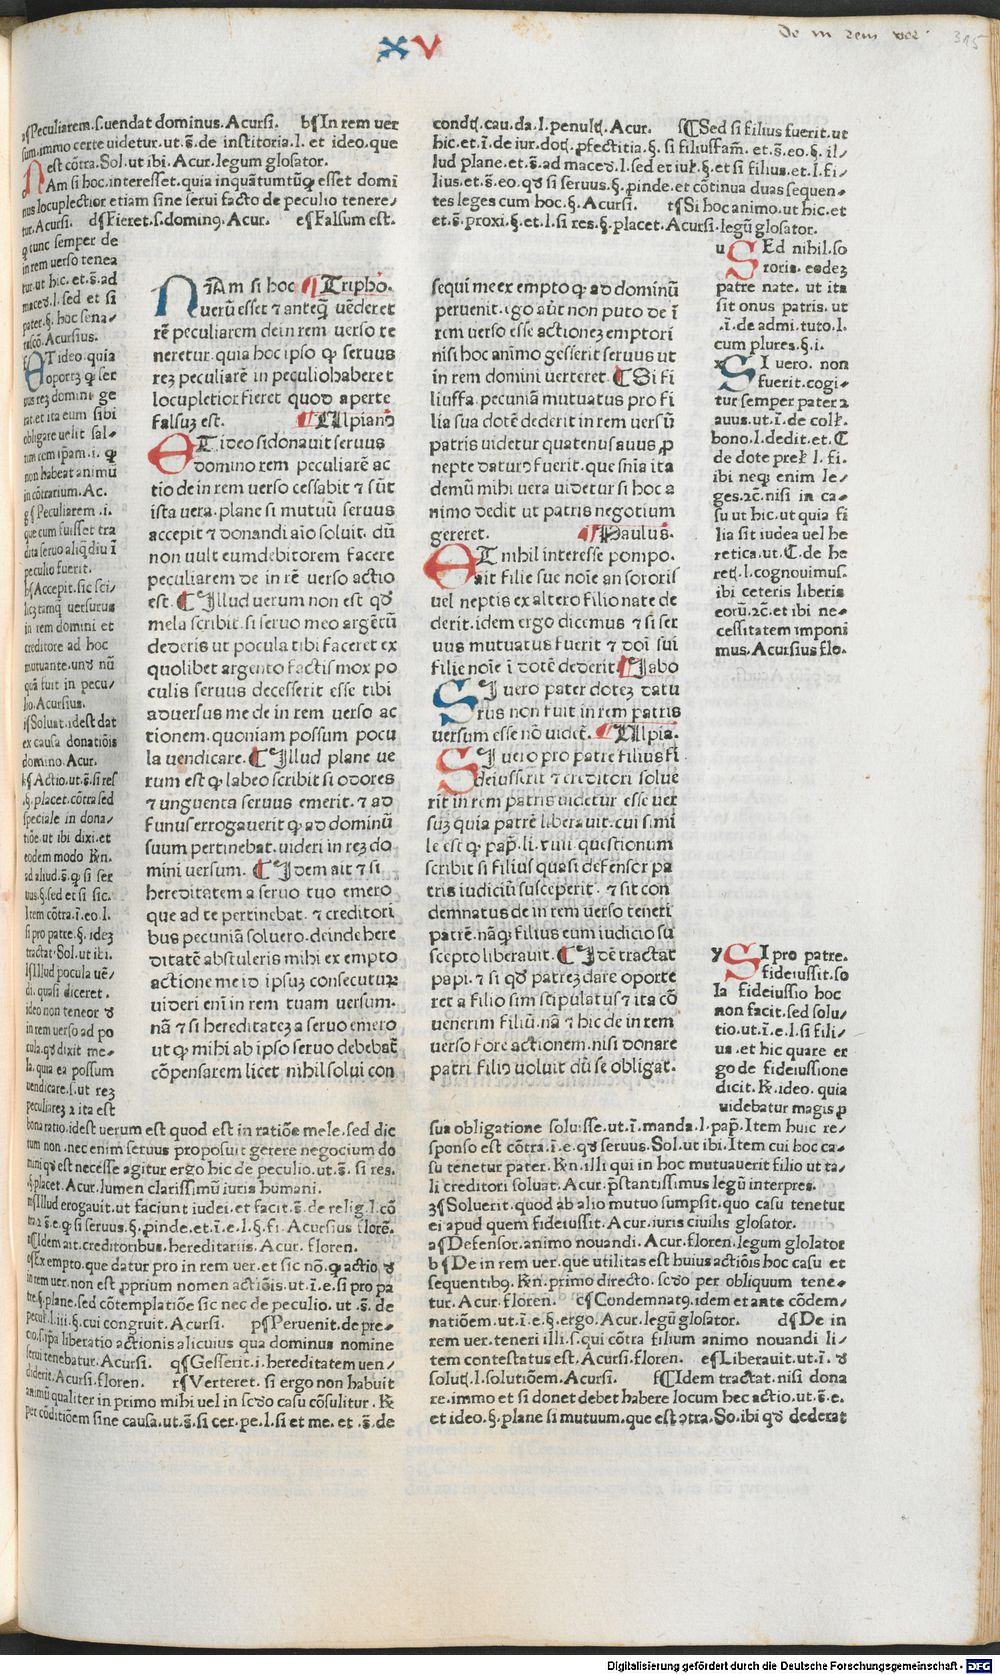 XV
De in rem ver.
315
a¶Peculiarem.s.uendat dominus.Acursi. b¶In rem uer
sum.immo certe uidetur.ut.s̄.de institoria.l. et ideo.que
est cōtra.Sol.ut ibi.Acur.legum glosator.
NAm si hoc.interesset.quia inquātumtūq3 esset domi
nus locuplectior etiam sine serui facto de peculio tenere/
tur.Acursi. d¶Fieret.s.domin9.Acur. e¶Falsum est.
q tunc semper de
in rem uerso tenea
tur.ut hic.et.s̄.ad
maced.l.sed et si
pater.§.hoc sena/
tuscō.Acursius.
ET ideo.quia
oportz qp ser
uus rez domini ge
rat.et ita eum sibi
obligare uelit sal/
non habeat animū
in cōtrarium.Ac.
g¶Peculiarem.i.
que cum fuisset tra
dita seruo aliqd iu ī
peculio fuerit.
h¶Accipit.sic sci/
in rem domini et
creditore ad hoc
mutuante.und nū
quā fuit in pecu/
lio.Acursius.
i¶Soluat.idest dat
ex causa donatiōis
domino.Acur.
k¶Actio.ut.s̄.si res
.§.placet.cōtra sed
speciale in dona/
tiōe.ut ibi dixi.et
eodem modo R̄n.
ad aliud.s̄.q si ser
uus.§.sed et si sic.
Item cōtra.ī.eo.l.
si pro patre.§.idez
tractat.Sol.ut ibi.
l¶Illud pocula uē/
di.quasi diceret.
ideo non teneor d
in rem uerso ad po
cula.qd dixit me/
la.quia ea possum
uendicare.s.ut rez
peculiarez 2 ita est
bona ratio.idest uerum est quod est in ratiōe mele.sed dic
tum non.nec enim seruus proposuit gerere negocium do
mini qd est necesse agitur ergo hic de peculio.ut.s̄. si res.
§.placet.Acur.lumen clarissimū iuris humani.
m¶Illud erogauit.ut faciunt iudei.et facit.s̄.de relig.l.cō
tra 2.s̄.e.q si seruus.§.pinde.et.ī.e.l.§.fi.Acursius florē.
n¶Idem ait.creditoribus.hereditariis.Acur.floren.
o¶Ex empto.que datur pro in rem uer.et sic nō.qp actio d
in rem uer.non est pprium nomen actiōis.ut.ī.e.si pro pa
tre.§.plane.sed cōtemplatiōe sic nec de peculio. ut .s̄. de
pecul.l.iii.§.cui congruit.Acursi. p¶Peruenit.de pre/
cio.s.ipa liberatio actionis alicuius qua dominus nomine
serui tenebatur.Acursi. q¶Gesserit.i.hereditatem uen/
diderit.Acursi.floren. r¶Verteret.si ergo non habuit
animū qualiter in primo mihi uel in scdo casu cōsulitur.R̄
per cōditiōem sine causa.ut.s̄.si cer.pe.l.si et me.et .s̄.de
NIAm si hoc ¶Tripho.
uerū esset 7 anteq uēderet
rē peculiarem dein rem uerso te
neretur.quia hoc ipso qp seruus
rez peculiarē in peculio haberet
locupletior fieret quod aperte
falsuz est. ¶Ulpianꝰ
ET ideo si donauit seruus
domino rem peculiarē ac
tio de in rem uerso cessabit 7 sūt
ista uera.plane si mutuū seruus
accepit 7 donandi aīo soluit. dū
non uult eum debitorem facere
peculiarem de in rē uerso actio
est. ¶Illud uerum non est qd
mela scribit.si seruo meo argētū
dederis ut pocula tibi faceret ex
quolibet argento factis mox po
culis seruus decesserit esse tibi
aduersus me de in rem uerso ac
tionem.quoniam possum pocu
la uendicare. ¶Illud plane ue
rum est qp labeo scribit si odores
7 unguenta seruus emerit. 7 ad
funus erogauerit qp ad dominū
suum pertinebat.uideri in rez do
mini uersum. ¶Idem ait 7 si
hereditatem a seruo tuo emero
que ad te pertinebat. 7 creditori
bus pecuniā soluero.deinde here
ditatē abstuleris mihi ex empto
actione me id ipsuz consecuturꝫ
uideri enī in rem tuam uersum.
nā 7 si hereditatez a seruo emero
ut qp mihi ab ipso seruo debebat
cōpensarem licet nihil solui con
condi.cau.da.l.penulti.Acur. s¶Sed si filius fuerit.ut
hic.et.ī.de iur.doti.pfectitia.§. si filiusfam̄.et.s̄.eo.§. il/
lud plane.et.s̄.ad maced.l.sed et iul.§.et si filius.et.l.fi/
lius.et.s̄.eo.qd si seruus.§.pinde.et cōtinua duas sequen/
tes leges cum hoc.§.Acursi. t¶Si hoc animo.ut hic.et
et.s̄.proxi.§.et.l.si res.§.placet.Acursi.legū glosator.
sequi me ex empto qp ad dominū
peruenit.ego aūt non puto de ī
rem uerso esse actionez emptori
nisi hoc animo gesserit seruus ut
in rem domini uerteret. ¶Si fi
liusfa.pecuniā mutuatus pro fi
lia sua dotē dederit in rem uersū
patris uidetur quatenus auus p
nepte daturꝰ fuerit.que snīa ita
demū mihi uera uidetur si hoc a
nimo dedit ut patris negotium
gereret. ¶Paulus.
ET nihil interesse pompo.
ait filie sue noīe an sororis
uel neptis ex altero filio nate de
derit.idem ergo dicemus 7 si ser
uus mutuatus fuerit 7 doī sui
filie noīe ī dotē dederit ¶Iabo
SI uero pater dotez datu
rus non fuit in rem patris
uersum esse nō uidet. ¶Ulpia.
SI uero pro patre filius fi
deiusserit 7 creditori solue
rit in rem patris uidetur esse uer
suz quia patrē liberauit.cui simi
le est qp pap.li.viii.questionum
scribit si filius quasi defensor pa
tris iudiciū susceperit. 7 sit con
demnatus de in rem uerso teneri
patrē.nāq3 filius eum iudicio su
scepto liberauit. ¶Idē tractat
papi. 7 si qd patrez dare oporte
ret a filio sim stipulatus 7 ita cō
uenerim filiū.nā 7 hic de in rem
uerso fore actionem.nisi donare
patri filiꝰ uoluit dū se obligat.
u SEd nihil.so
roris. eodez
patre nate. ut ita
sit onus patris.ut
.ī.de admi.tuto.l.
cum plures.§.i.
x SI uero. non
fuerit.cogi/
tur semper pater 2
auus.ut.ī.de coll.
bono.l.dedit.et.C
de dote prel.l.fi.
ibi neq3 enim le/
ges.2c̄.nisi in ca/
su ut hic.ut quia fi
lia sit iudea uel he
retica.ut.C.de he
reti.l.cognouimus.
ibi ceteris liberis
eorū.2c̄.et ibi ne/
cessitatem imponi
mus.Acursius flo.
y SI pro patre.
fideiussit.so
la fideiussio hoc
non facit.sed solu/
tio.ut.ī.e.l.si fili/
us.et hic quare er
go de fideiussione
dicit.R̄.ideo. quia
uidebatur magis p
sua obligatione soluisse.ut.ī.manda.l.pap. Item huic re/
sponso est cōtra.ī.e.qd seruus.Sol.ut ibi.Item cui hoc ca/
su tenetur pater.R̄n.illi qui in hoc mutuauerit filio ut ta/
li creditori soluat.Acur.pstantissimus legū interpres.
z¶Soluerit.quod ab alio mutuo sumpsit.quo casu tenetur
ei apud quem fideiussit.Acur.iuris ciuilis glosator.
a¶Defensor.animo nouandi.Acur.floren.legum glosator
b¶De in rem uer.que utilitas est huius actiōis hoc casu et
sequentib9.R̄n.primo directo.scdo per obliquum tene/
tur.Acur.floren. c¶Condemnat9.idem et ante cōdem/
natiōem.ut.ī.e.§.ergo.Acur.legū glosator. d¶De in
rem uer.teneri illi.s.qui cōtra filium animo nouandi li/
tem contestatus est.Acursi.floren. e¶Liberauit.ut.ī. d
soluti.l.solutiōem.Acursi. f¶Idem tractat.nisi dona
re.immo et si donet debet habere locum hec actio.ut.s̄.e.
et ideo.§.plane si mutuum.que est ɔtra.So.ibi qd dederat
Digitalisierung gefördert durch die Deutsche Forschungsgemeinschaft - DFG